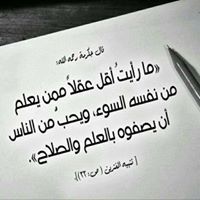 قال عكرمة رحمه الله:
«ما رأيتُ أقل عقلاً ممن يعلم
من نفسه السوء، ويحب من الناس
أن يصفوه بالعلم والصلاح».
[تنبيه المغترين (ص:٢٣)].